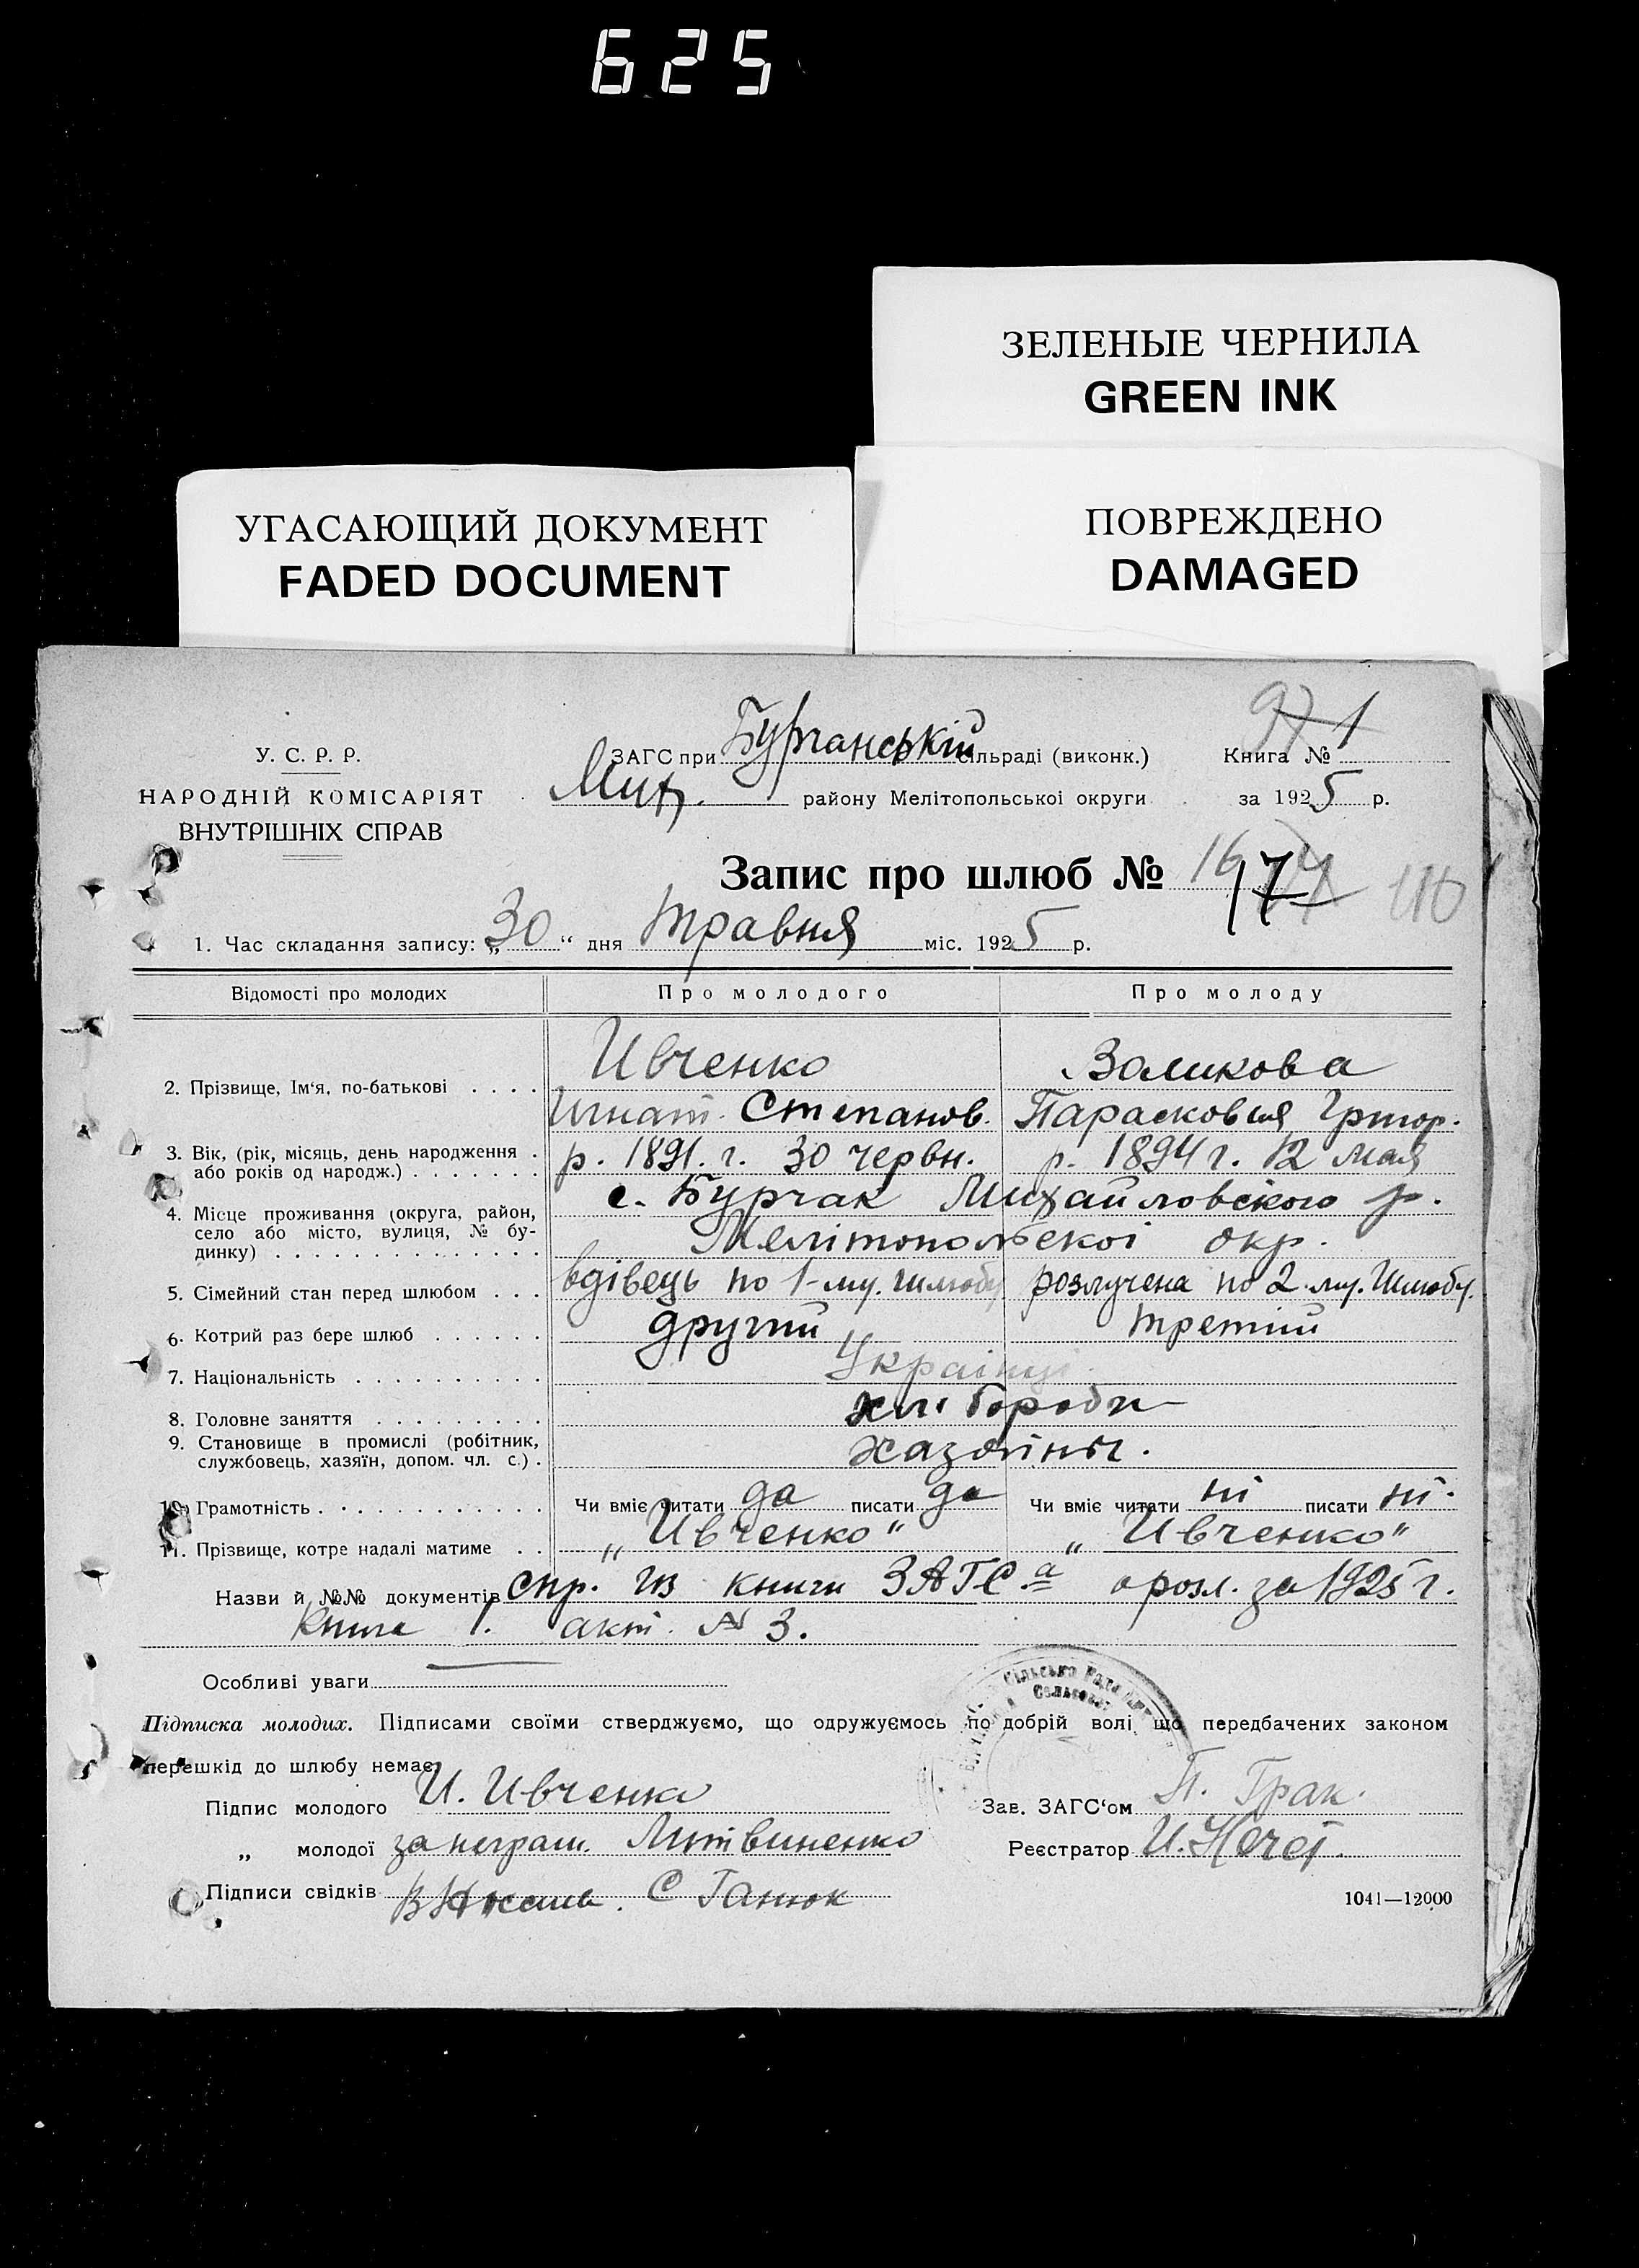 625
ЗЕЛЕНЫЕ ЧЕРНИЛА
GREEN INK
УГАСАЮЩИЙ ДОКУМЕНТ
FADED DOCUMENT
ПОВРЕЖДЕНО
DAMAGED
У. С. Р. Р.
НАРОДНІЙ КОМІСАРІЯТ
ВНУТРІШНІХ СПРАВ
ЗАГС при Бурчанській сільраді (виконк.) Книга № 1
Мих. району Мелітопольскоі округи за 1925 р.
Запис про шлюб № 17
1. Час складання запису: „30“ дня травня міс. 1925 р.
Відомості про молодих Про молодого Про молоду
2. Прізвище, Ім‘я, по-батькові Ивченко
Игнат Степанов. Парасковия Григор.
3. Вік, (рік, місяць, день народження або років од народж.) р. 1891. г. 30 червн. р. 1894 г. 12 мая
4. Місце проживання (округа, район, село або місто, вулиця, № будинку) с. Бурчак Михайловского р.
Мелітопольскоі окр.
5. Сімейний стан перед шлюбом вдівець по 1-му. шлюбу розлучена по 2-му. шлюбу.
6. Котрий раз бере шлюб другий третій
7. Національність Украінці
8. Головне заняття хлібороби
9. Становище в промислі (робітник, службовець, хазяїн, допом. чл. с.)
10. Грамотність Чи вміє читати да писати да Чи вміє читати ні писати ні.
11. Прізвище, котре надалі матиме „Ивченко“ „Ивченко“
Назви й №№ документів спр. из книги ЗАГСа о розл. за 1925 г.
Книга 1. акт. № 3.
Особливі уваги
Підписка молодих. Підписами своїми стверджуємо, що одружуємось по добрій волі що передбачених законом
перешкід до шлюбу немає
Підпис молодого И. Ивченко Зав. ЗАГС‘ом П. Грак.
„ молодої за неграм. Литвиненко Реєстратор
Підписи свідків С Ганюк
1041—12000